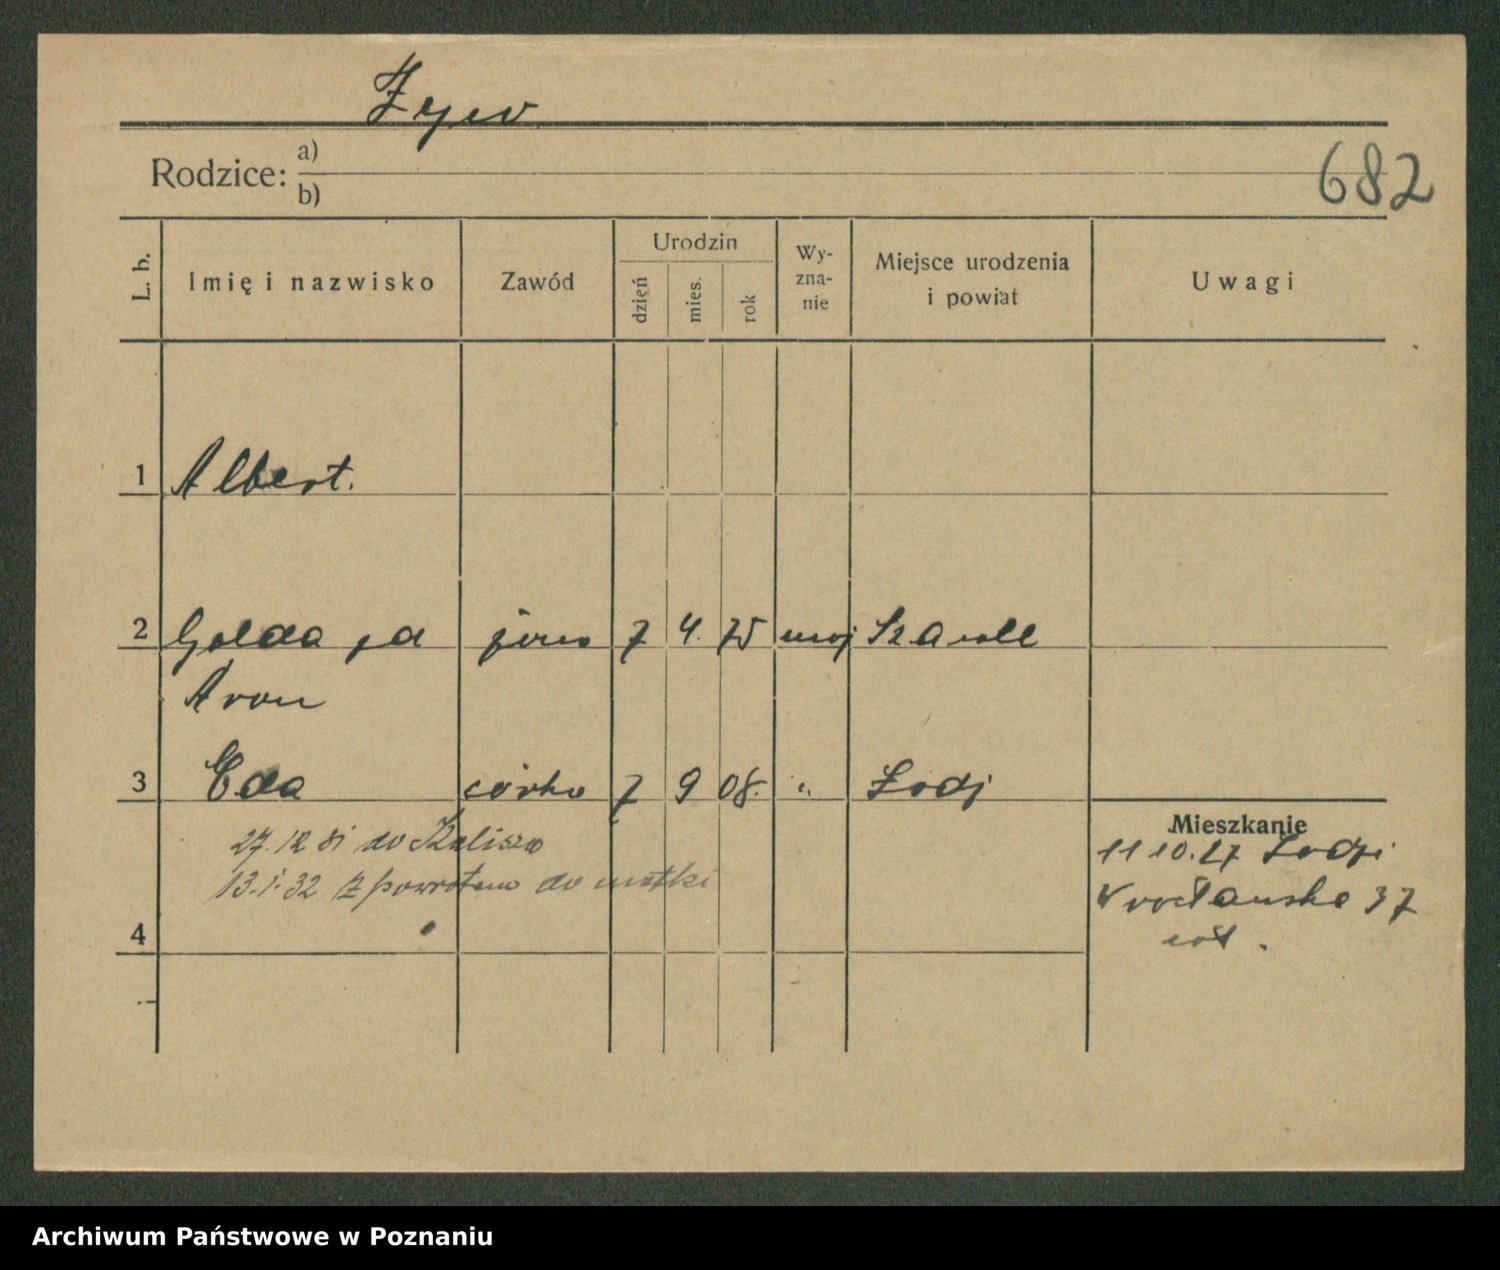 Żyw
Rodzice: a)
b)
682
L. b. Imię i nazwisko Zawód Urodzin dzień mies. rok Wy-zna-nie Miejsce urodzenia i powiat Uwagi
1 Albert.
2 Golda zd żona 7 4. 75 moj
Aron
3 Eda córka 7 9 08. " Łodź
27. 12 31 do Kalisza
13. 1. 32 z powrotem do matki
4
Mieszkanie
11 10. 27 Łodzi
Wrocławska 37